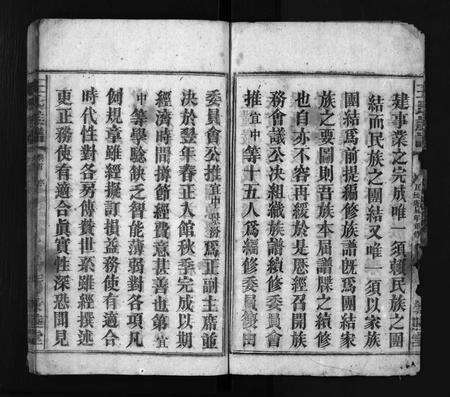 建事業之完成唯一須賴民族之團
結而民族之團結又唯一須以家族
團結爲前提編修族譜旣爲團結家
族之要圖則吾族本屆譜牒之續修
也自亦不容再緩於是應召開族
務會議公決組織族譜續修委員會
推宜中等十五人爲編修委員復由
委員會公推宜中爲正副主席並
決於豐年春正入館秋季完成以期
經濟時間撙節經費意甚善也第宜
中等學驗缺乏智能薄弱對各項凡
例規章雖經擬訂損益務使有適合
時代性對各房傳贊世系雖經撰述
更正務使有適合眞實性深恐聞見